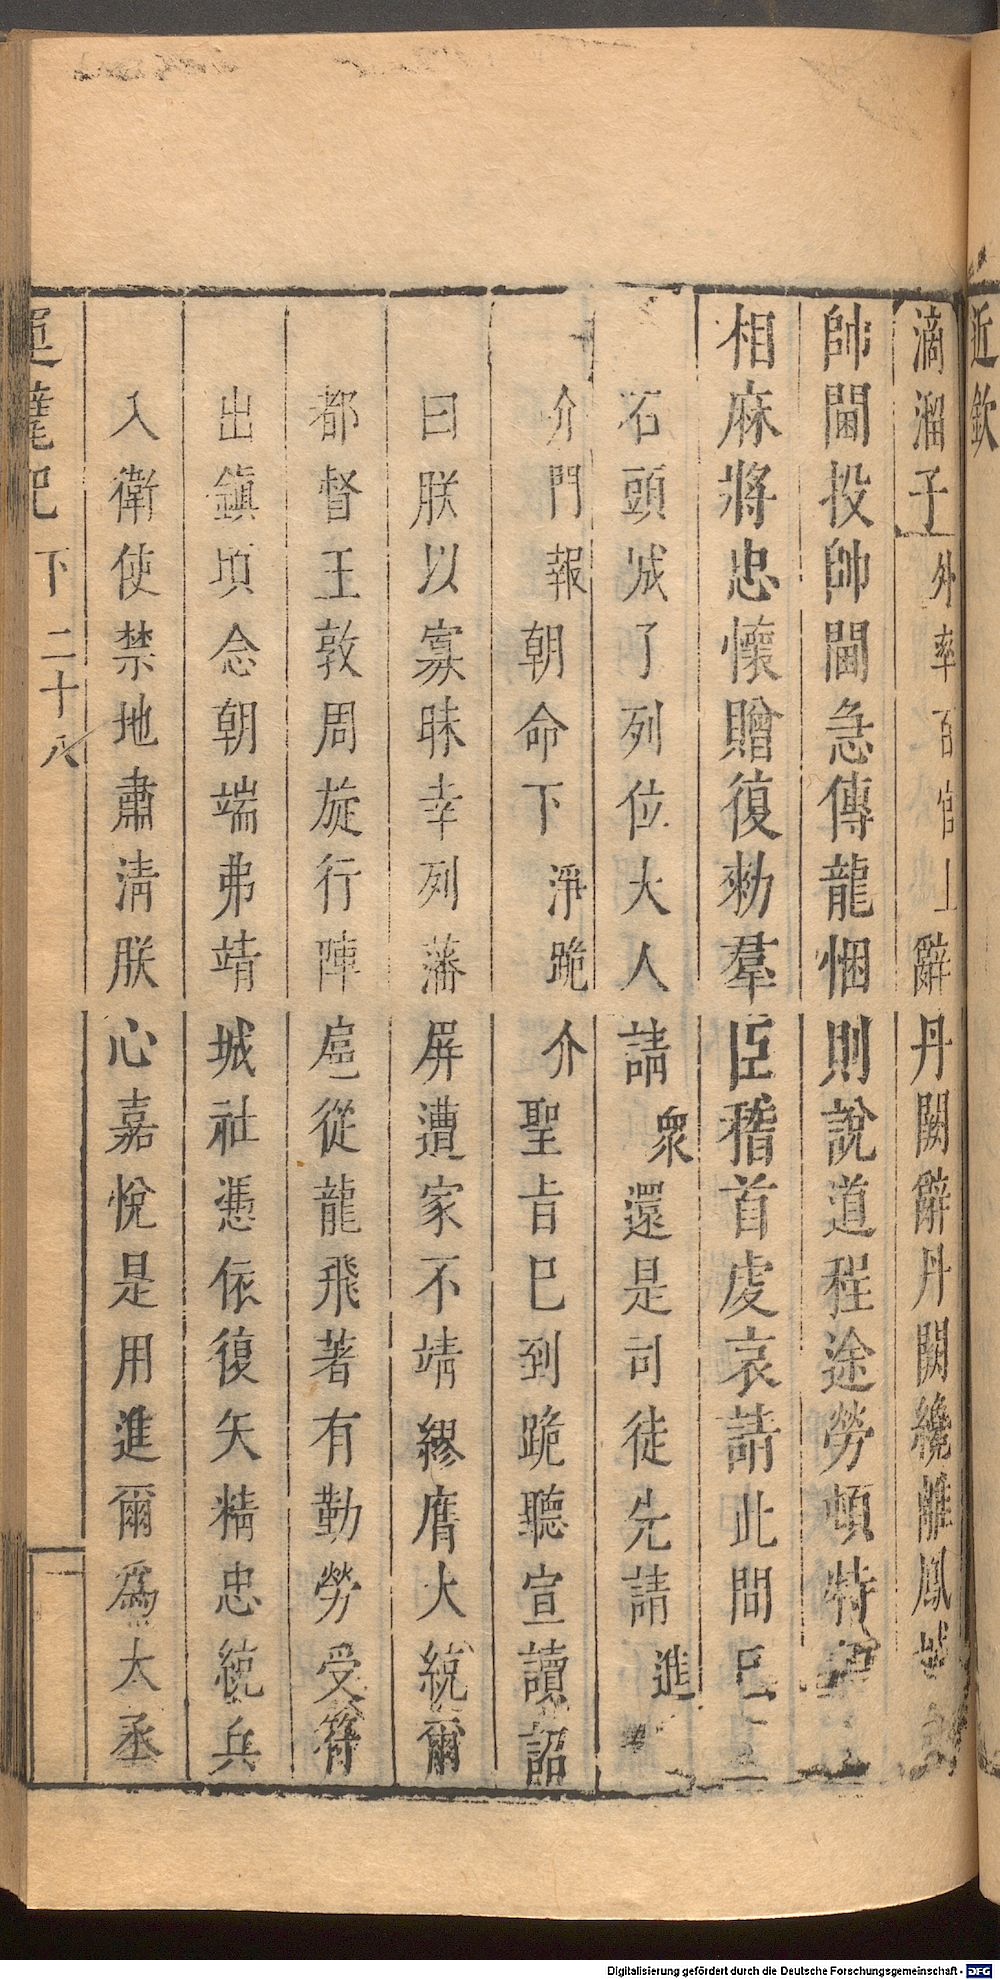 近欽
滴溜子外率百官上辭丹闕辭丹闕纔離鳳城
帥閫投帥閫急傳龍悃則說道程途勞頓特
相麻將忠懷贈復勑羣臣稽首虔哀請此間已
石頭城了列位大人請衆還是司徒先請進
介門報朝命下淨跪介聖旨巳到跪聽宣讀詔
曰朕以寡昧幸列藩屏遭家不靖繆膺大統爾
都督王敦周旋行陣扈從龍飛著有勤勞受符
出鎮頃念朝端弗靖城社憑依復矢精忠統兵
入衛使禁地肅淸朕心嘉悅是用進爾爲太丞
下 二十八
Digitalisierung gefördert durch die Deutsche Forschungsgemeinschaft - DFG